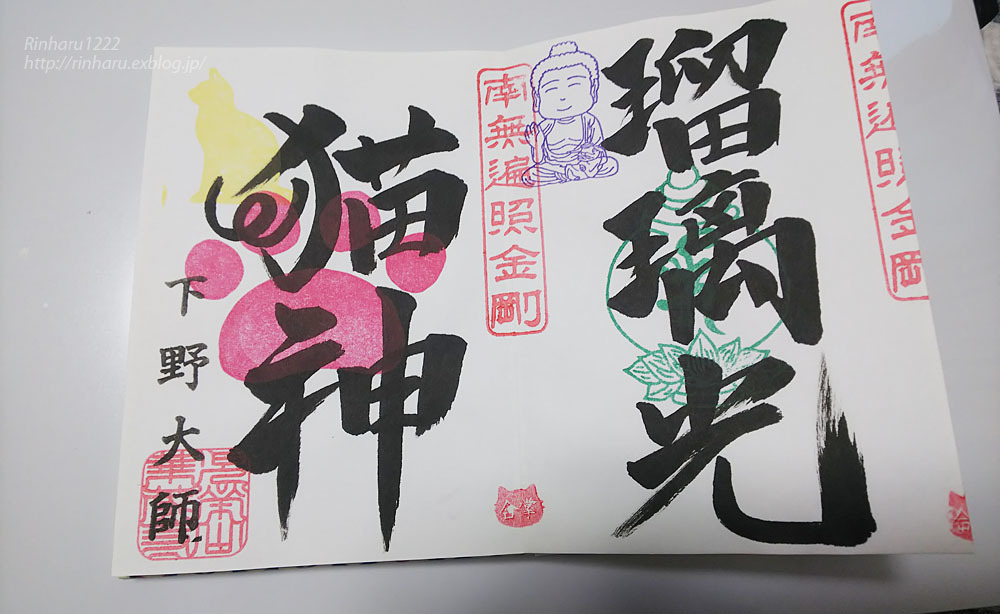 Rinharu1222
http://rinharu.exblog.jp/
南無遍照金剛
瑠璃光
南無遍照金剛
猫神
下野大師